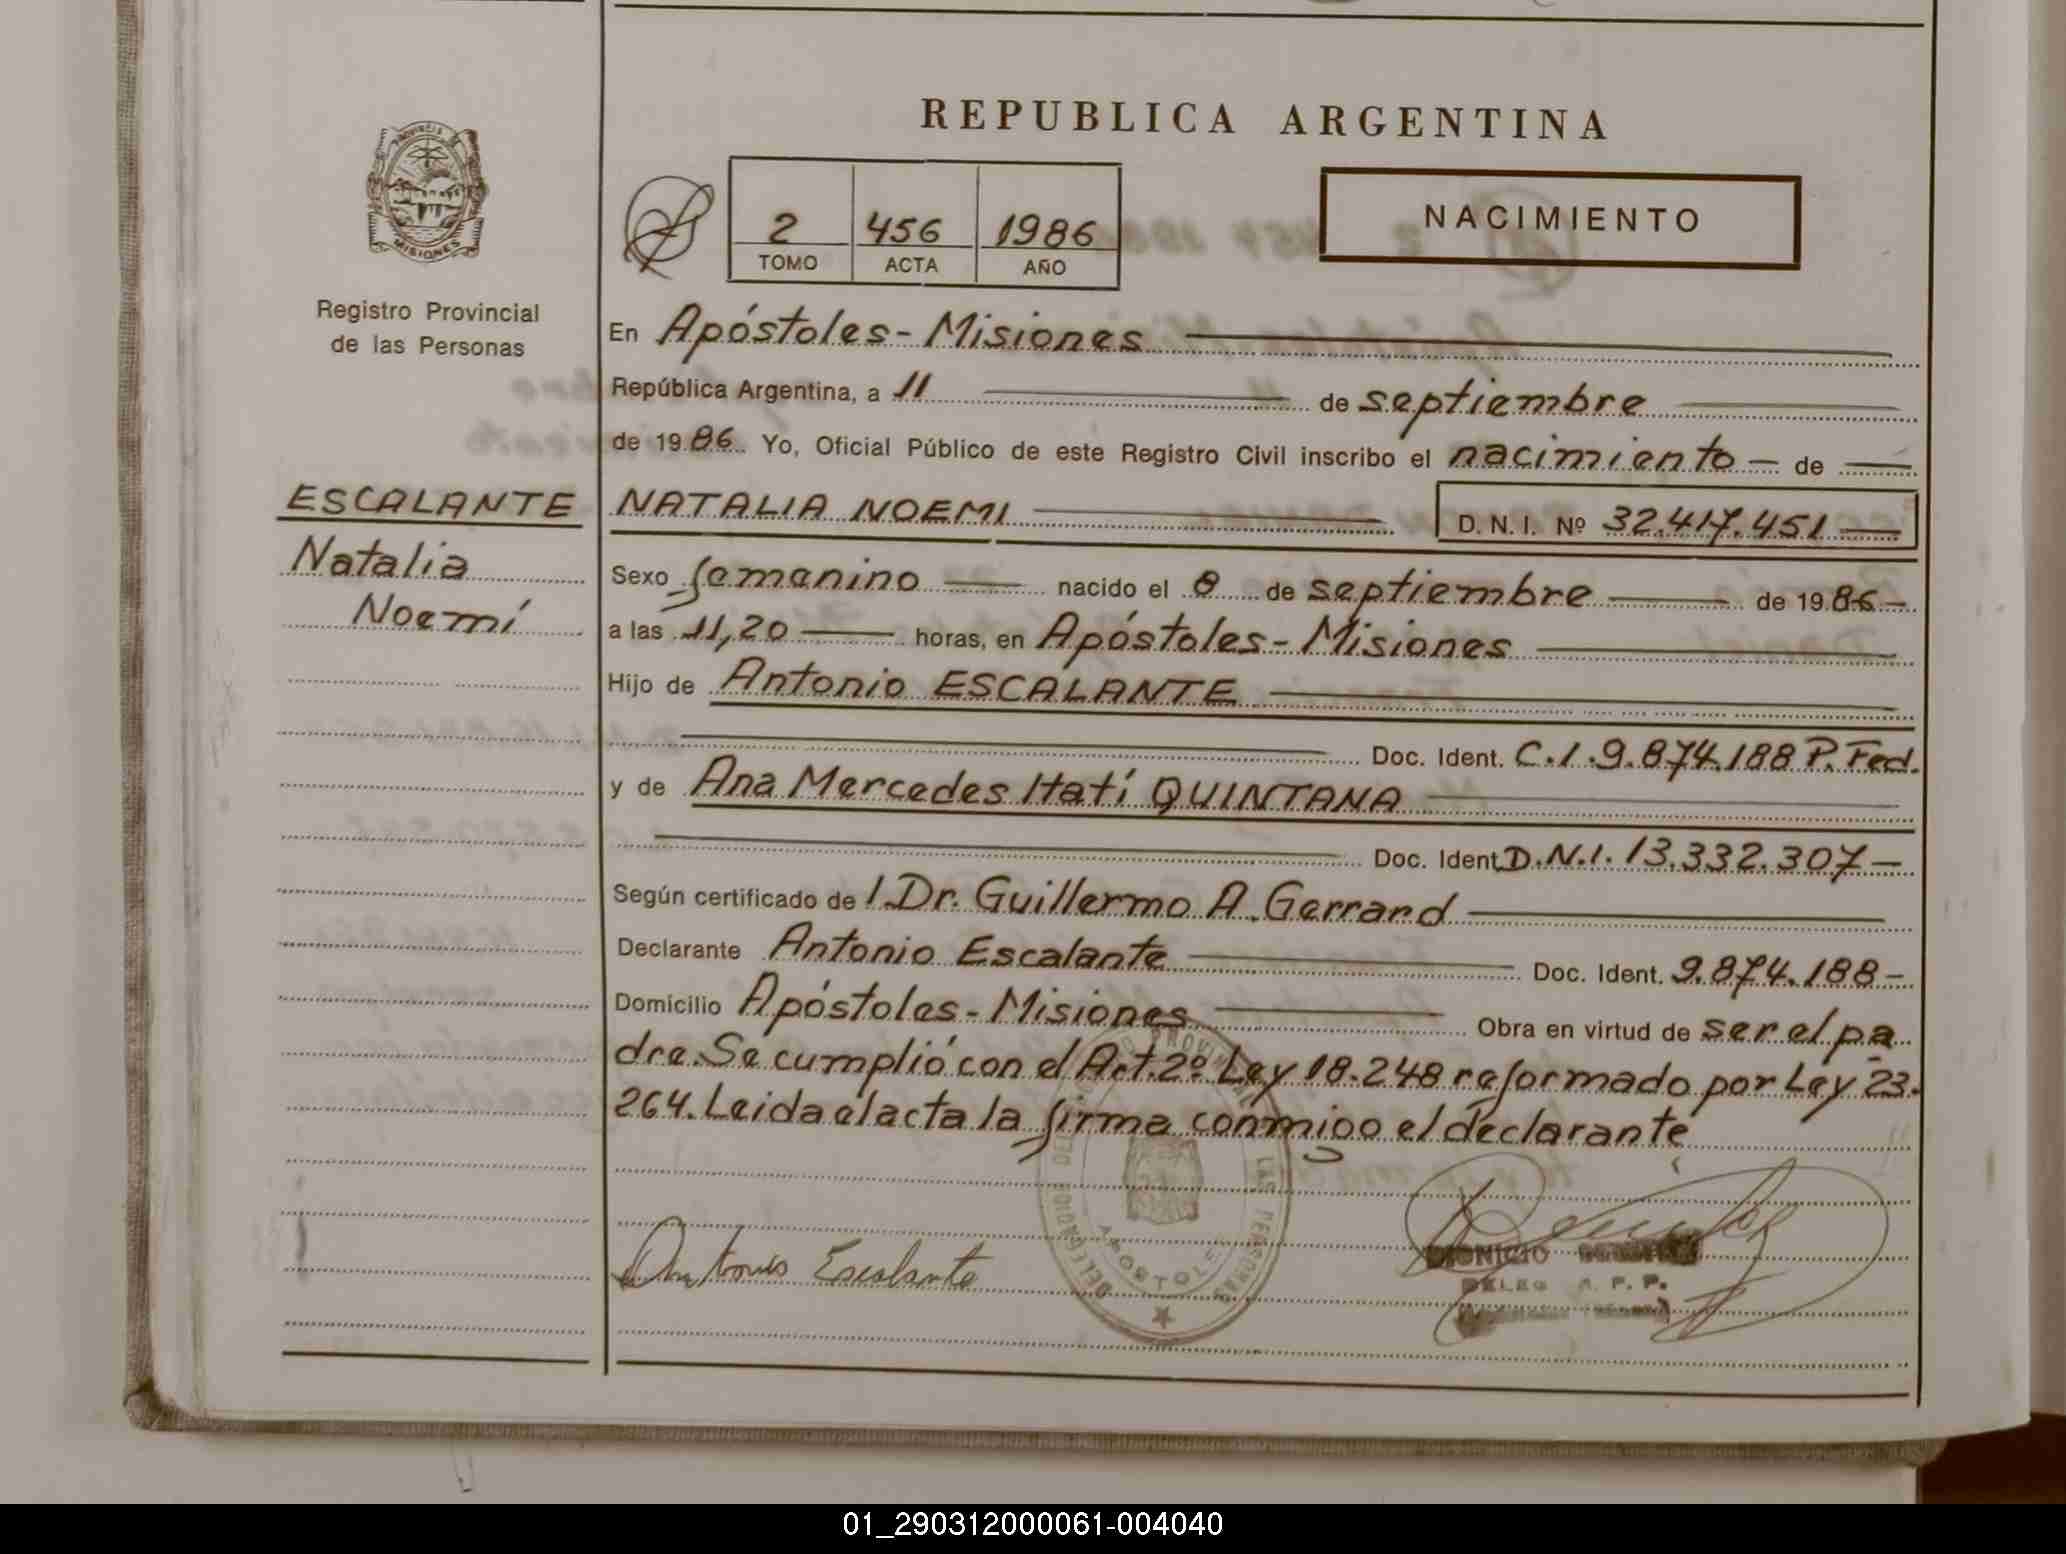 REPUBLICA ARGENTINA
PROVINCIA
MISIONES
Registro Provincial
de las Personas
2 456 1986
TOMO ACTA AÑO
NACIMIENTO
En Apóstoles - Misiones
República Argentina, a 11 de septiembre
de 1986 Yo, Oficial Público de este Registro Civil inscribo el nacimiento de
ESCALANTE
Natalia
Noemí
NATALIA NOEMI D. N. I. Nº 32.417.451
Sexo femenino nacido el 8 de septiembre de 1986
a las 11,20 horas, en Apóstoles - Misiones
Hijo de Antonio ESCALANTE
Doc. Ident. C.I. 9.874.188 P. Fed.
y de Ana Mercedes Itatí QUINTANA
Doc. Ident. D.N.I. 13.332.307
Según certificado de l Dr. Guillermo A. Gerrard
Declarante Antonio Escalante Doc. Ident. 9.874.188
Domicilio Apóstoles - Misiones Obra en virtud de ser el pa
dre. Se cumplió con el Art. 2º Ley 18.248 reformado por Ley 23.
264. Leida el acta la firma conmigo el declarante
Antonio Escalante
APOSTOLES
LAS PERSONAS
DIONICIO
DELEG A. P. P.
01_290312000061-004040